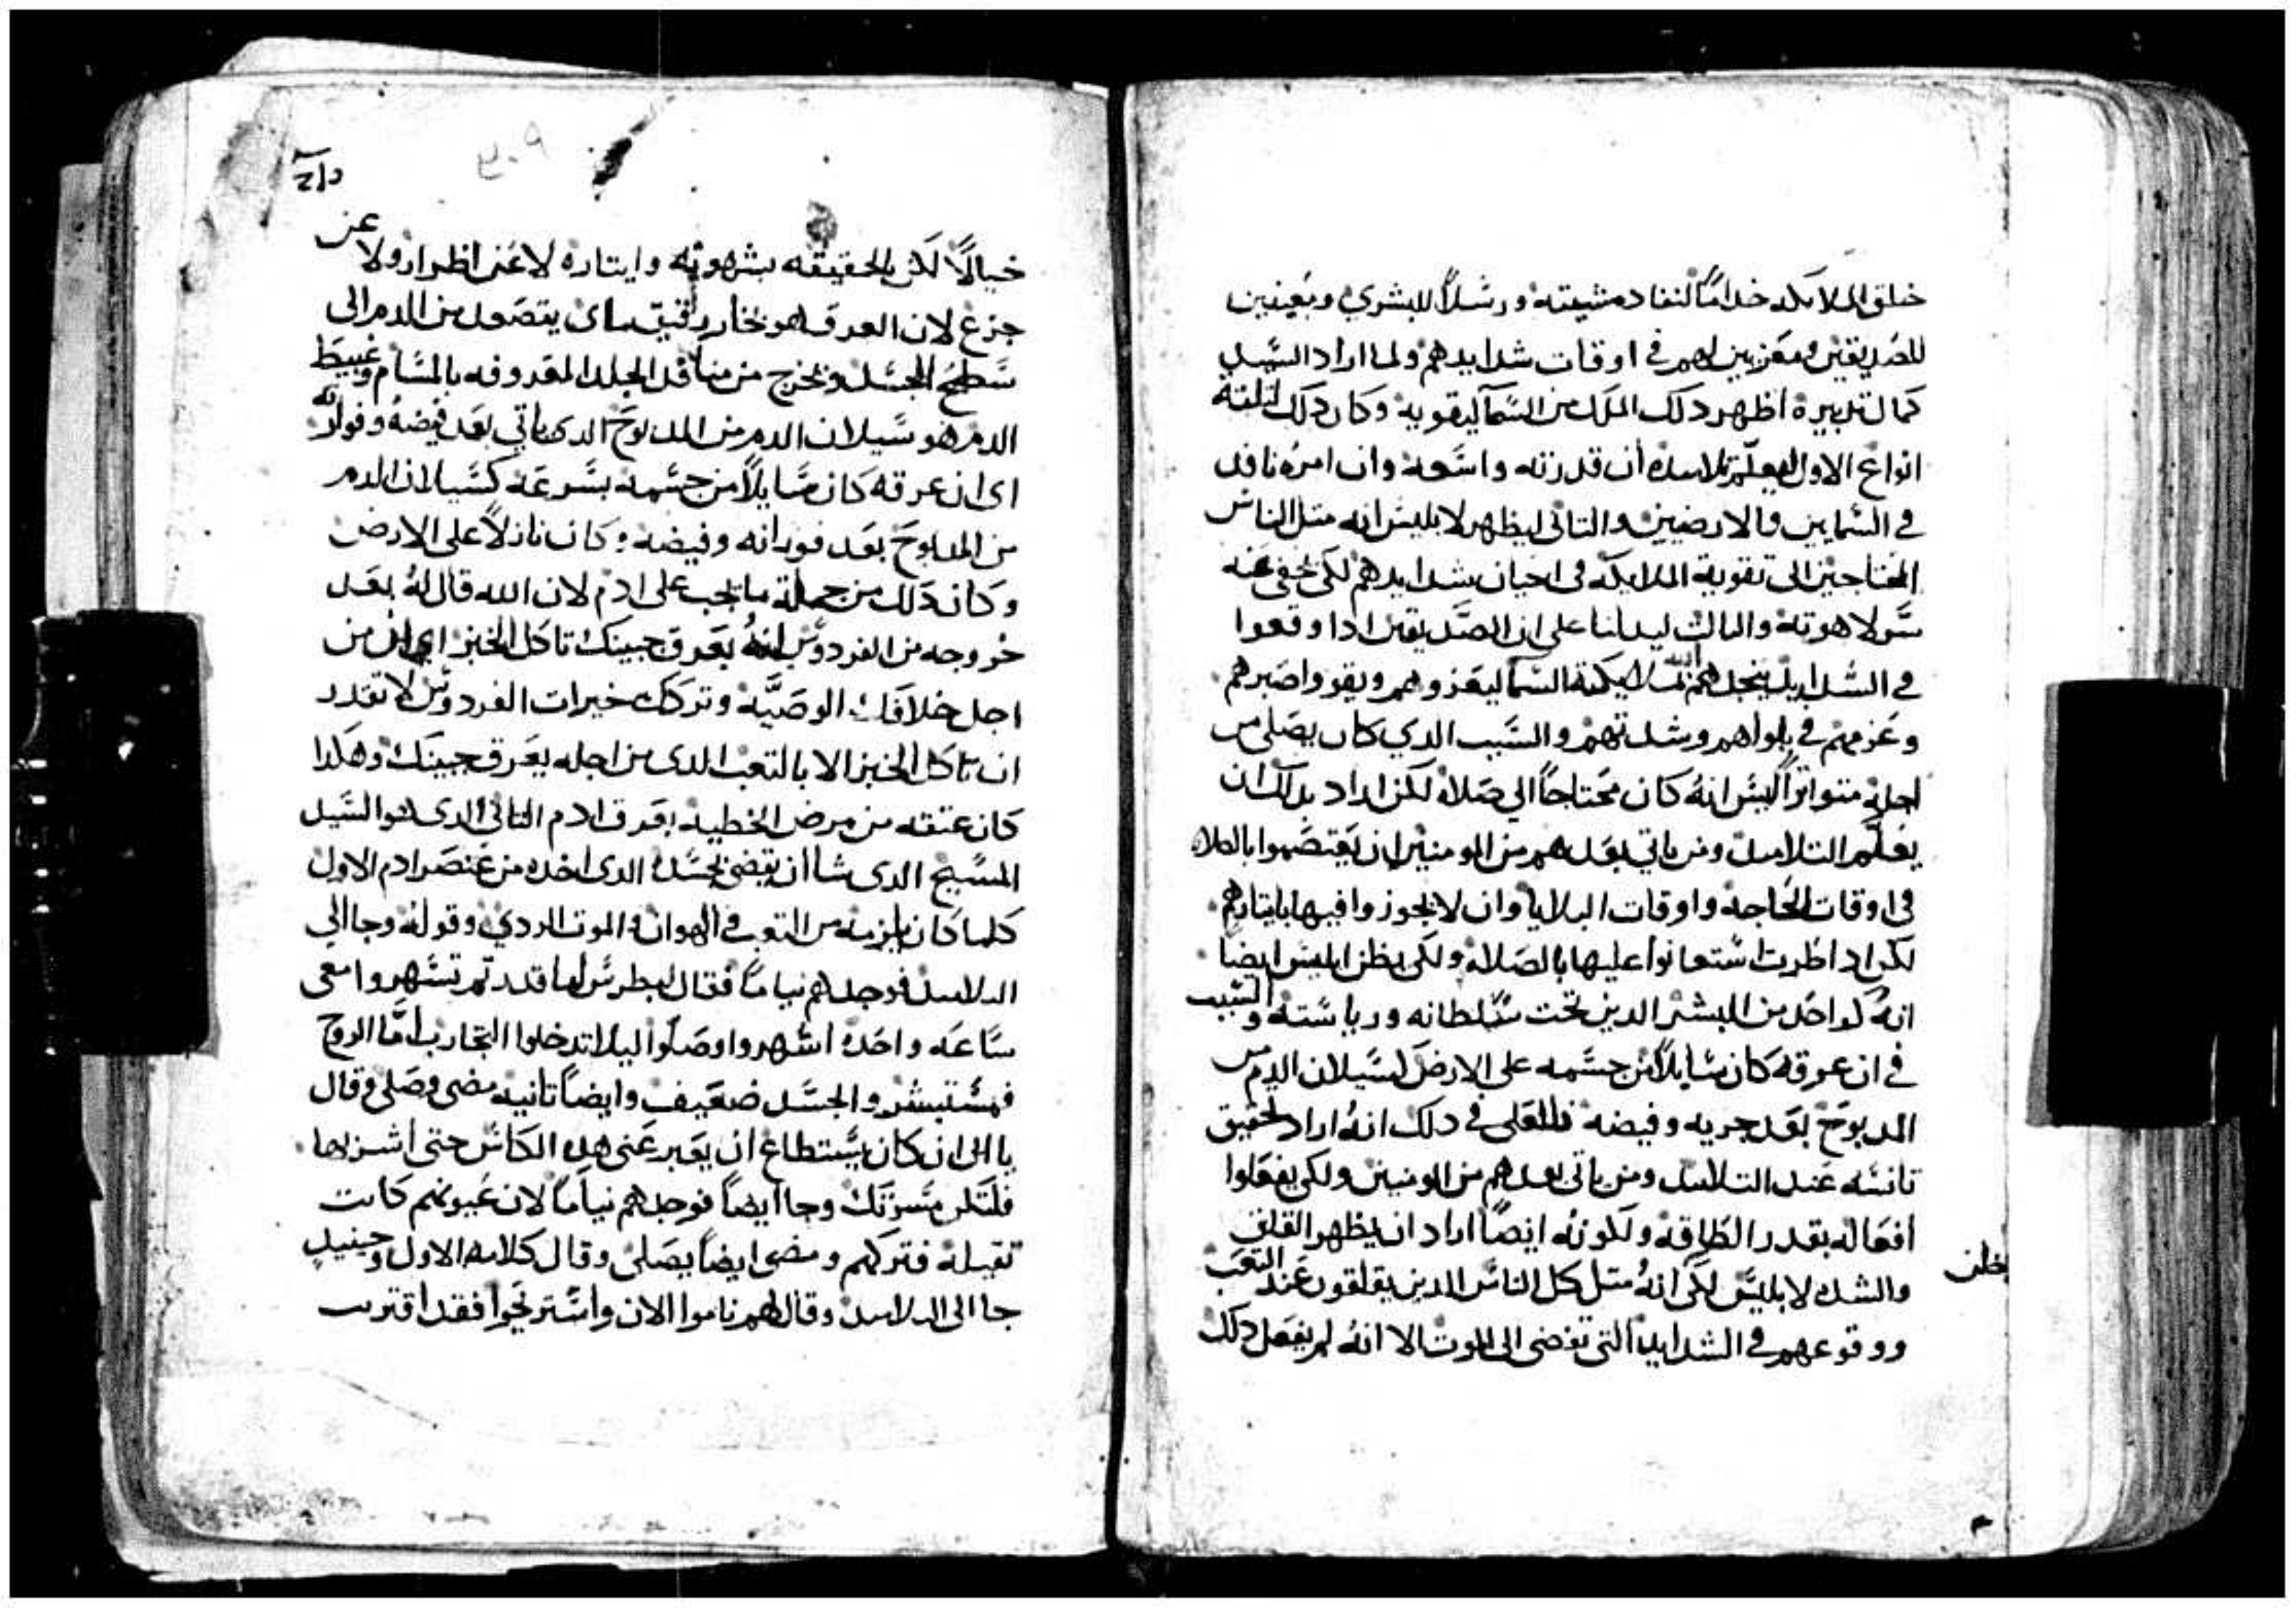 خلق الملايكه خداما لنفاد مشيته ورسلاً للبشري ومعينين
للصديقين ومعزيين لهم في اوقات شدايدهم ولما اراد السيد
كمال تدبيره اظهر دلك الملك من السما ليقويه وكان دلك لتلته
انواع الاول ليعلم تلاميده أن قدرته واسعه وان امره نافد
في السمايين والارضيين والتاني ليظهر لابليس انه متل الناس
المحتاجين الى تقوية الملايكه في احيان شدايدهم لكي يخفي عنه
سر لاهوته والتالت ليدلنا على ان الصديقين ادا وقعوا
في الشدايد ينجدهم الله بملايكة السما ليعزوهم ويقووا صبرهم
وعزمهم في بلواهم وشدتهم والسبب الدي كان يصلي من
اجله متواتراً ليس انه كان محتاجاً الي صلاه لكن اراد بدلك ان
يعلم التلاميد ومن ياتي بعدهم من المومنين ان يعتصموا بالصلاه
في اوقات الحاجه واوقات البلايا وان لا يجوزوا فيها بايتارهم
لكن ادا طرت استعانوا عليها بالصلاه ولكي يظن ابليس ايضاً
انه كواحد من البشر الدين تحت سلطانه ورياسته والسبب
في ان عرقه كان سايلاً من جسمه على الارض كسيلان الدم من
المدبوح بعد جريه وفيضه فالمعنى في دلك انه اراد تحقيق
تانسه عند التلاميد ومن ياتي بعدهم من المومنين ولكي يفعلوا
افعاله بقدر الطاقه ولكونه ايضاً اراد ان يظهر القلق
والشده لابليس لكي يظن انه متل كل الناس الدين يقلقون عند التعب
ووقوعهم في الشدايد التي تفضي الى الموت الا انه لم يفعل دلك
خيالاً لكن بالحقيقه بشهوته وايتاره لا عن اظرار ولا عن
جزع لان العرق هو بخار رقيق ماي يتصعد من الدم الى
سطح الجسد ويخرج من منافد الجلد المعروفه بالمسام وغبيط
الدم هو سيلان الدم من المدبوح الدي ياتي بعد فيضه وفورانه
اي ان عرقه كان سايلاً من جسمه بسرعه كسيلان الدم
من المدبوح بعد فورانه وفيضه وكان نازلاً على الارض
وكان دلك من جملة ما يجب على ادم لان الله قال له بعد
خروجه من الفردوس انه بعرق جبينك تاكل الخبز اي ان من
اجل خلافك الوصيه وتركك خيرات الفردوس لا تقدر
ان تاكل الخبز الا بالتعب الدي من اجله يعرق جبينك وهكدا
كان عتقه من مرض الخطيه بعرق ادم التاني الدي هو السيد
المسيح الدي شا ان يقضي بجسده الدي اخده من عنصر ادم الاول
كلما كان يلزمه من التعب في الهوان والموت الردي وقوله وجا الي
التلاميد فوجدهم نياماً فقال لبطرس اما قدرتم تسهروا معي
ساعه واحده اسهروا وصلوا ليلا تدخلوا التجارب اما الروح
فمستبشر والجسد ضعيف وايضاً تانيه مضى وصلى وقال
يا ابي ان كان يستطاع ان يعبر عني هده الكاس حتى اشربها
فلتكن مسرتك وجا ايضاً فوجدهم نياماً لان عيونهم كانت
تقيله فتركهم ومضى ايضاً يصلي وقال كلامه الاول وحينيد
جا الى التلاميد وقال لهم ناموا الان واستريحوا فقد اقتربت